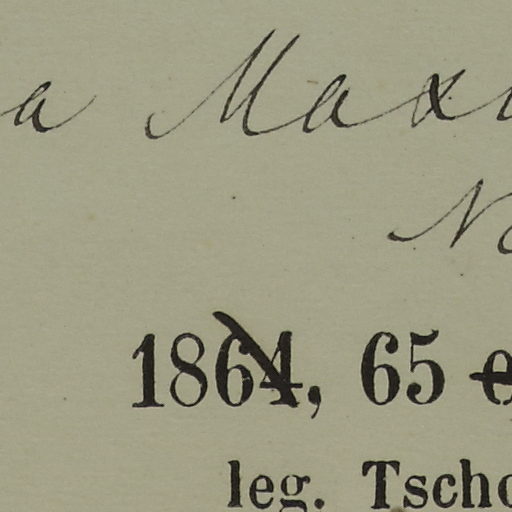 a Max
N
1864, 65 e
leg. Tscho